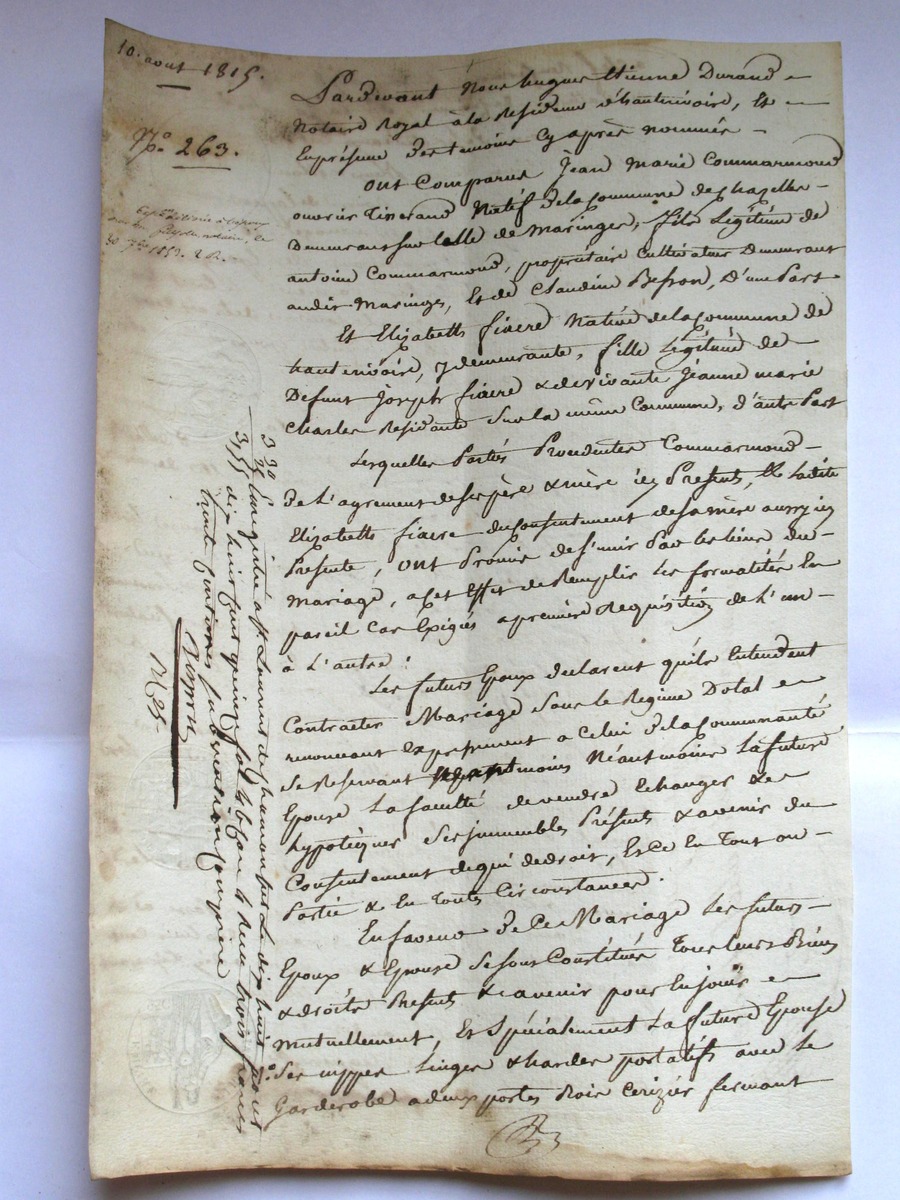 10. aout 1815.
N.o 263.
Pardevant Nous hugues Etienne Durand
Notaire Royal à la Residence d'hauterivoire, Et
En présence des temoins cy après nommés
ont Comparus Jean Marie Commarmond
ouvrier Tisserand Natif de la Commune de chazelles
Demeurant sur celle de Maringes, fils Legitime de
antoine Commarmond, propriétaire Cultivateur Demeurant
audit Maringes, Et de Claudine Besson, D'une Part
Et Elizabeth fiaere Native de la Commune de
hauterivoire, y demeurante, fille Legitime de
Defunt Joseph fiaere & de vivante Jeanne marie
Charles Residante Sur la même Commune, d'autre Part
Lesquelles Parties Procedantes Commarmond
De L'agrement de ses père & mère icy Presents, Et Ladite
Elizabeth fiaere du Consentement de sa mère aussy icy
Presente, ont Promis de s'unir Par les liens du
Mariage, a cet Effet de Remplir Les formalités En
pareil Cas Exigées a premiere Requisition de L'un
à L'autre :
Les futurs Epoux declarent qu'ils Entendent
Contracter Mariage Sous le Regime Dotal en
renonceant Expressement a Celui de la Communauté
Se Reservant Néautmoins La future
Epouse La faculté de vendre Echanger &
hypotéquer Ses immeubles Présents & avenir du
Consentement de qui de droit, Et Ce En Tout ou
Partie & En Toutes Circonstances.
En faveur De Ce Mariage Les futurs
Epoux & Epouse Se sont Constitués Tous leurs Biens
& droits Presents & avenir pour En jouir
mutuellement, Et Spécialement La future Epouse
Ses nippes Linges & hardes portatifs avec Le
Garderobe a deux portes Bois Cerizier fermant